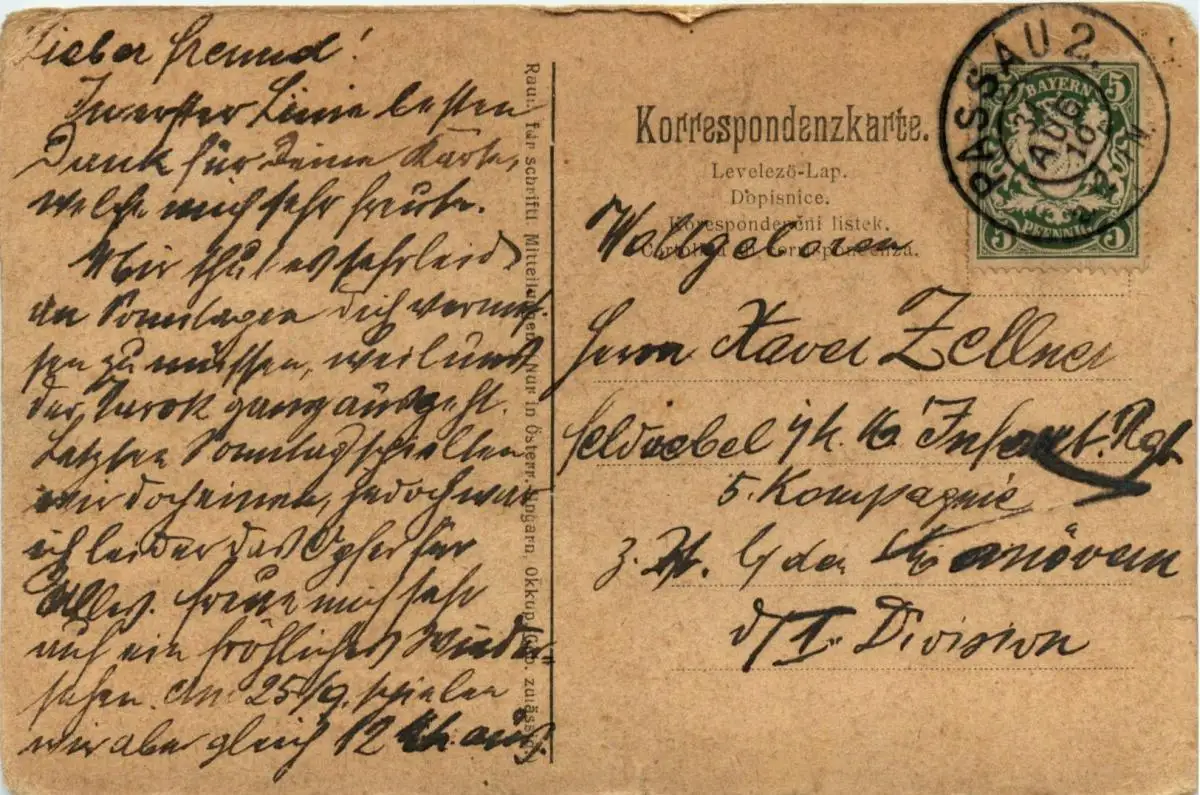 Lieber Freund!
In erster Linie besten
Dank für Deine Karte,
welche mich sehr freute.
Mir thut es sehr leid
an Sonntagen dich vermis-
sen zu müssen, weil uns
der Tarok ganz ausgeht.
Letzten Sonntag spielten
wir doch einen, jedoch war
ich leider das Opfer für
Alles. Freue mich sehr
auf ein fröhliches Wieder-
sehen. Am 25/9. spielen
wir aber gleich 12 aus.
Raum für schriftl. Mitteilungen. Nur in Österr.-Ungarn, Okkup.-Geb. zulässig.
Korrespondenzkarte.
Levelező-Lap.
Dopisnice.
Korespondenční listek.
Cartolina di corrispondenza.
PASSAU 2.
31 AUG 10
BAYERN
5 5
5 5
PFENNIG
Herrn Xaver Zellner
Feldwebel 16 Infant. Rgt.
5. Kompagnie
z. Zt. b/ den Manövern
d/I. Division